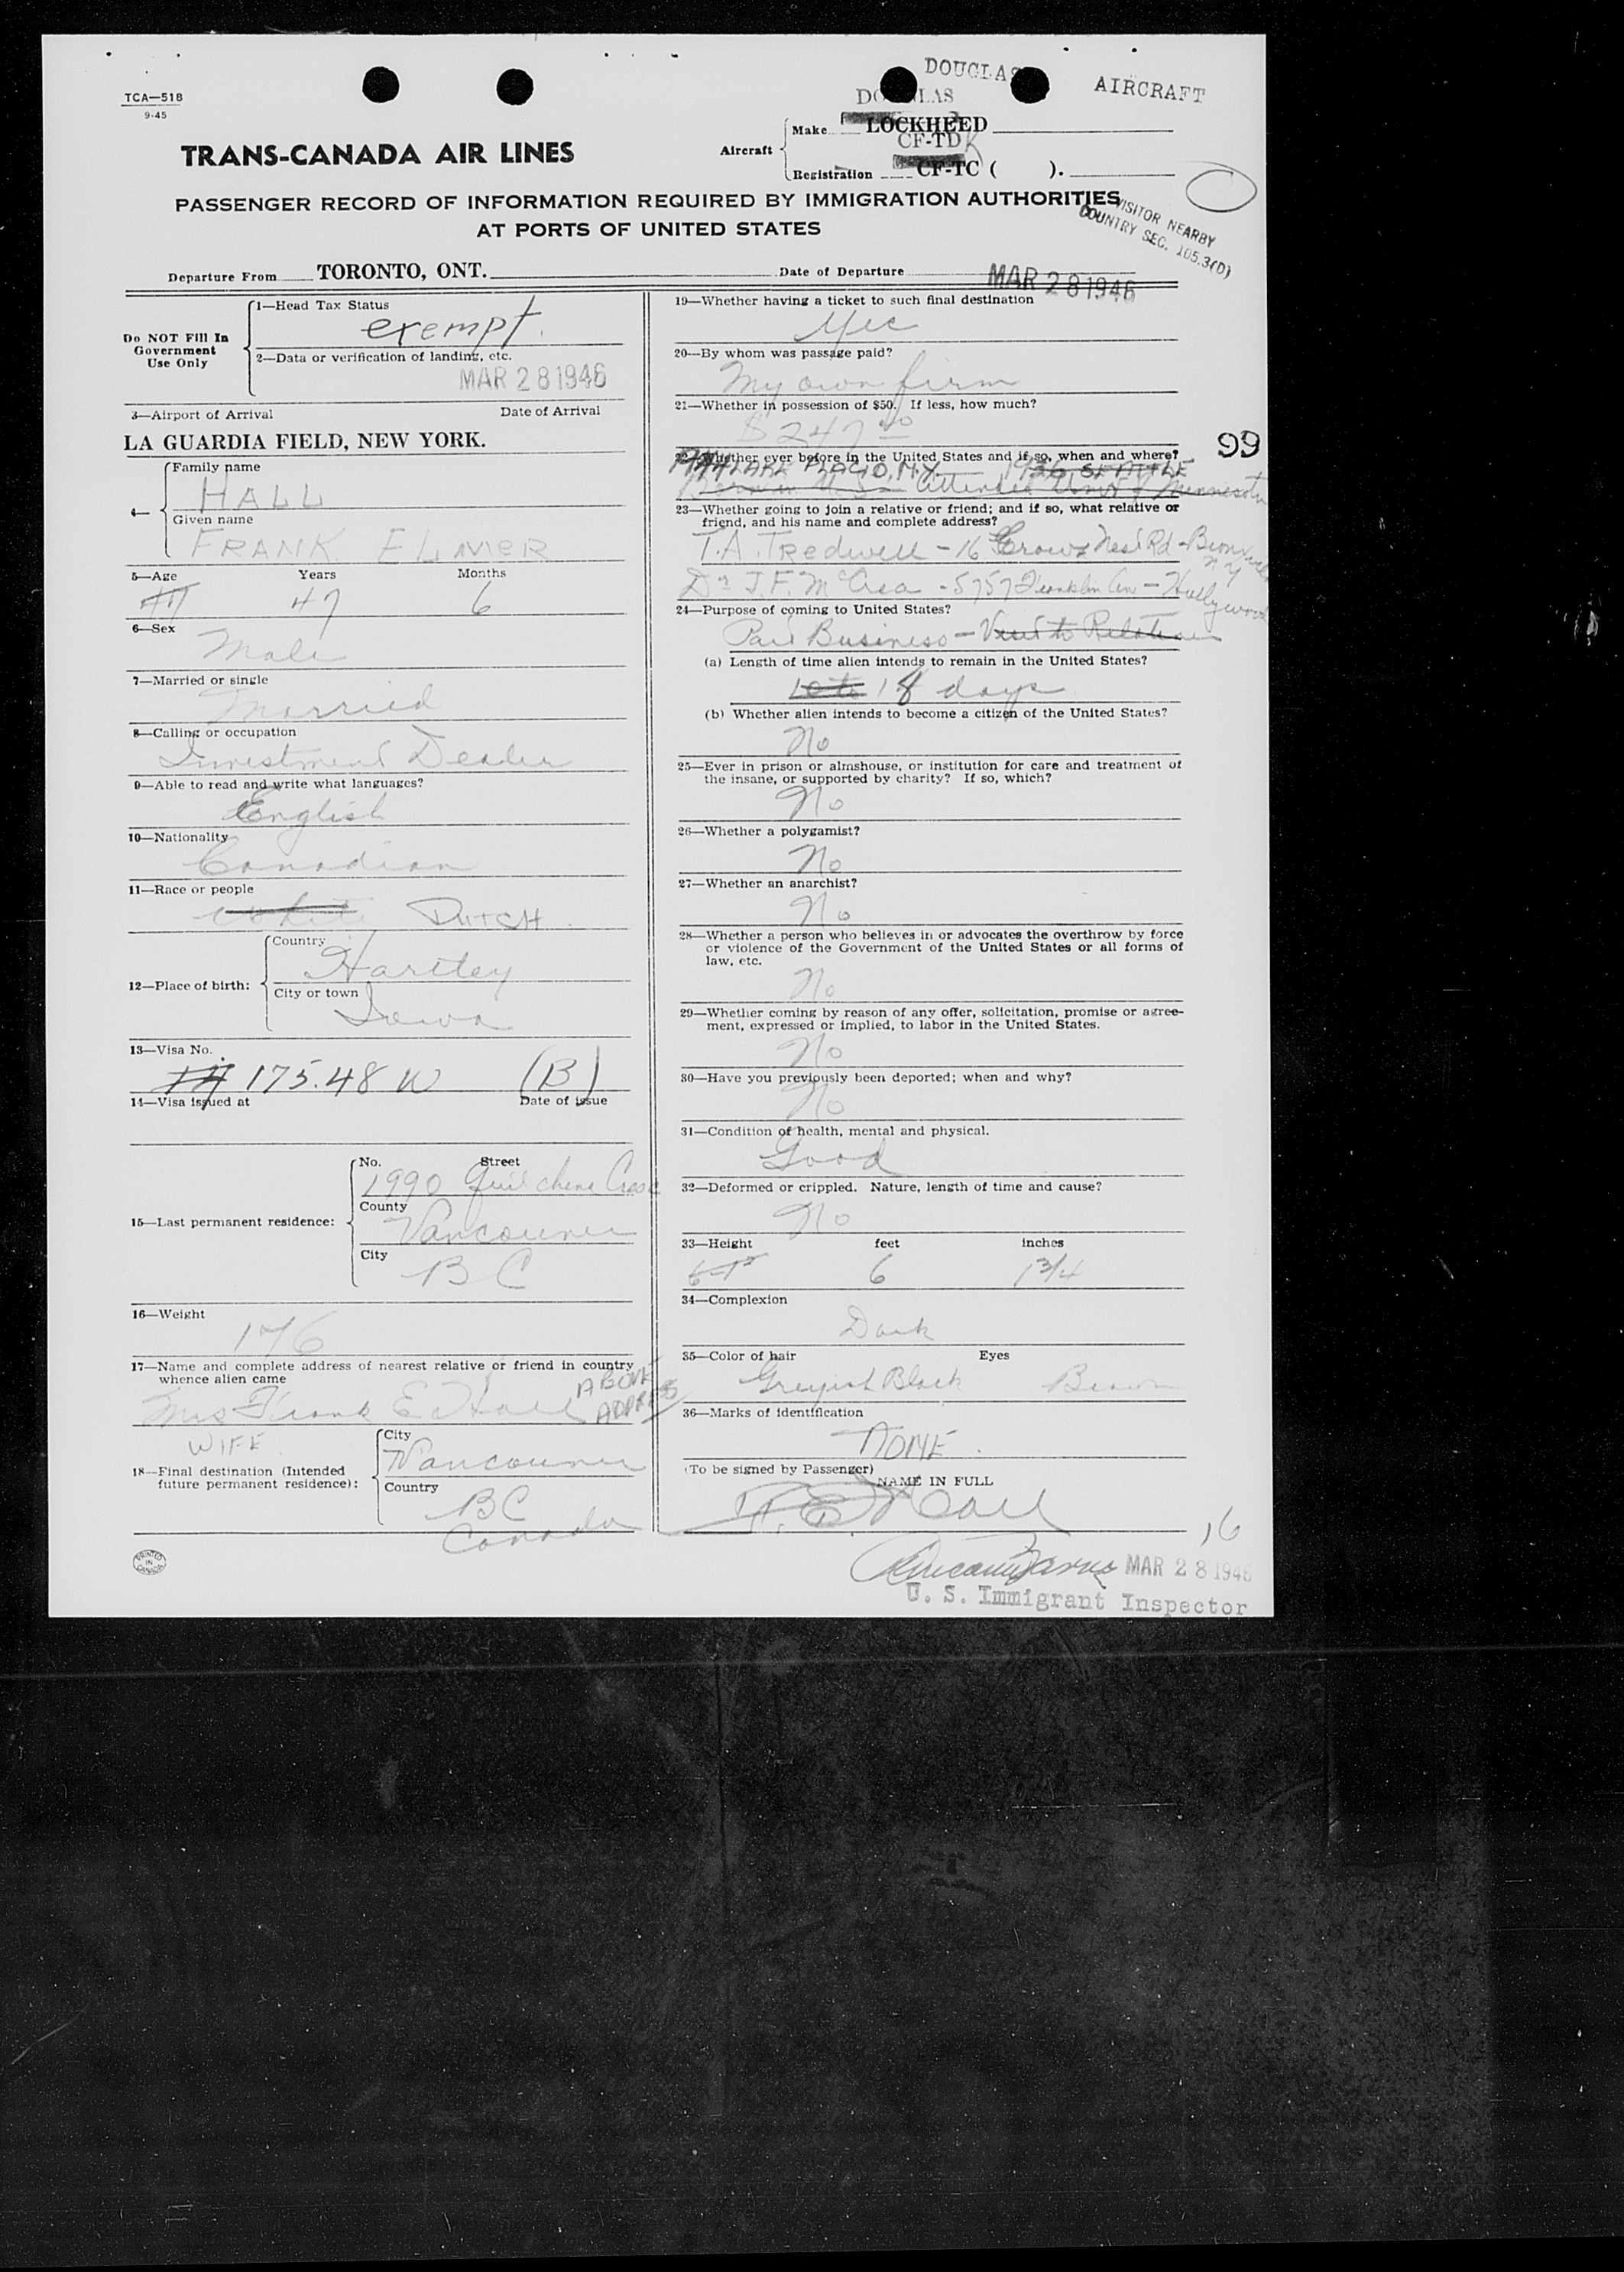 TCA—518
9-45
DOUGLAS
AIRCRAFT
DOUGLAS
TRANS-CANADA AIR LINES
Aircraft
Make LOCKHEED
CF-TDK
Registration CF-TC ( ).
PASSENGER RECORD OF INFORMATION REQUIRED BY IMMIGRATION AUTHORITIES
AT PORTS OF UNITED STATES
VISITOR NEARBY
COUNTRY SEC. 105.3(D)
Departure From TORONTO, ONT. Date of Departure MAR 28 1946
Do NOT Fill In
Government
Use Only
1—Head Tax Status
exempt.
2—Data or verification of landing, etc.
MAR 28 1946
3—Airport of Arrival Date of Arrival
LA GUARDIA FIELD, NEW YORK.
4—
Family name
HALL
Given name
FRANK ELMER
5—Age Years Months
47 6
6—Sex
Male
7—Married or single
Married
8—Calling or occupation
Investment Dealer
9—Able to read and write what languages?
English
10—Nationality
Canadian
11—Race or people
white DUTCH
12—Place of birth:
Country
Hartley
City or town
Iowa
13—Visa No.
175.48 W (B)
14—Visa issued at Date of issue
15—Last permanent residence:
No. Street
1990 Quilchena Cres
County
Vancouver
City
BC
16—Weight
176
17—Name and complete address of nearest relative or friend in country
whence alien came
Mrs Frank E Hall ABOVE
ADDRESS
WIFE
18—Final destination (Intended
future permanent residence):
City
Vancouver
Country
BC
Canada
PRINTED
IN
CANADA
19—Whether having a ticket to such final destination
Yes
20—By whom was passage paid?
My own firm
21—Whether in possession of $50. If less, how much?
$247.00
99
22—Whether ever before in the United States and if so, when and where?
LAKE PLACID, N.Y. 1936 SEATTLE
Born in U.S. Attended Univ of Minnesota
23—Whether going to join a relative or friend; and if so, what relative or
friend, and his name and complete address?
T.A. Tredwell - 16 Crows Nest Rd - Bronxville
N Y
Dr J.F. McCrea - 5757 Franklin Ave - Hollywood
24—Purpose of coming to United States?
Business - Visit to Relatives
(a) Length of time alien intends to remain in the United States?
10 to 18 days
(b) Whether alien intends to become a citizen of the United States?
No
25—Ever in prison or almshouse, or institution for care and treatment of
the insane, or supported by charity? If so, which?
No
26—Whether a polygamist?
No
27—Whether an anarchist?
No
28—Whether a person who believes in or advocates the overthrow by force
or violence of the Government of the United States or all forms of
law, etc.
No
29—Whether coming by reason of any offer, solicitation, promise or agree-
ment, expressed or implied, to labor in the United States.
No
30—Have you previously been deported; when and why?
No
31—Condition of health, mental and physical.
Good
32—Deformed or crippled. Nature, length of time and cause?
No
33—Height feet inches
6 1 3/4
34—Complexion
Dark
35—Color of hair Eyes
Greyish Black Brown
36—Marks of identification
NONE.
(To be signed by Passenger)
NAME IN FULL
F. E. Hall
16
MAR 28 1946
U. S. Immigrant Inspector